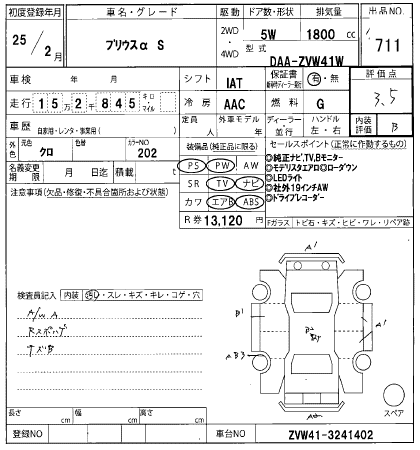 初度登録年月 車名・グレード 駆動 ドア数・形状 排気量 出品NO
25 / 2月 プリウスα S 2WD・4WD 5W 1800 cc 711
型式
DAA-ZVW41W
車検 年 月 シフト IAT 保証書 有・無 評価点
走行 15万2千845 キロ・マイル 冷房 AAC 燃料 G 3.5
車歴 自家用・レンタ・事業用( ) 定員 人 外車モデル 年 ディーラー・並行 ハンドル 左・右 内装評価 B
外色 元色 クロ 色替 カラーNO 202 装備品(純正品に限る) セールスポイント(正常に作動するもの)
名義変更期限 月 日迄 積載 t PS PW AW
SR TV ナビ
カワ エアB ABS
R券 13,120 円
◎純正ナビ,TV,Bモニター
◎モデリスタエアロ◎ローダウン
◎LEDライト
◎社外19インチAW
◎ドライブレコーダー
注意事項(欠品・修復・不具合箇所および状態)
Fガラス トビ石・キズ・ヒビ・ワレ・リペア跡
検査員記入 内装 ・スレ・キズ・キレ・コゲ・穴
A/W A
A1
B1
A1
AB3
スペア
長さ cm 幅 cm 高さ cm
登録NO 車台NO ZVW41-3241402